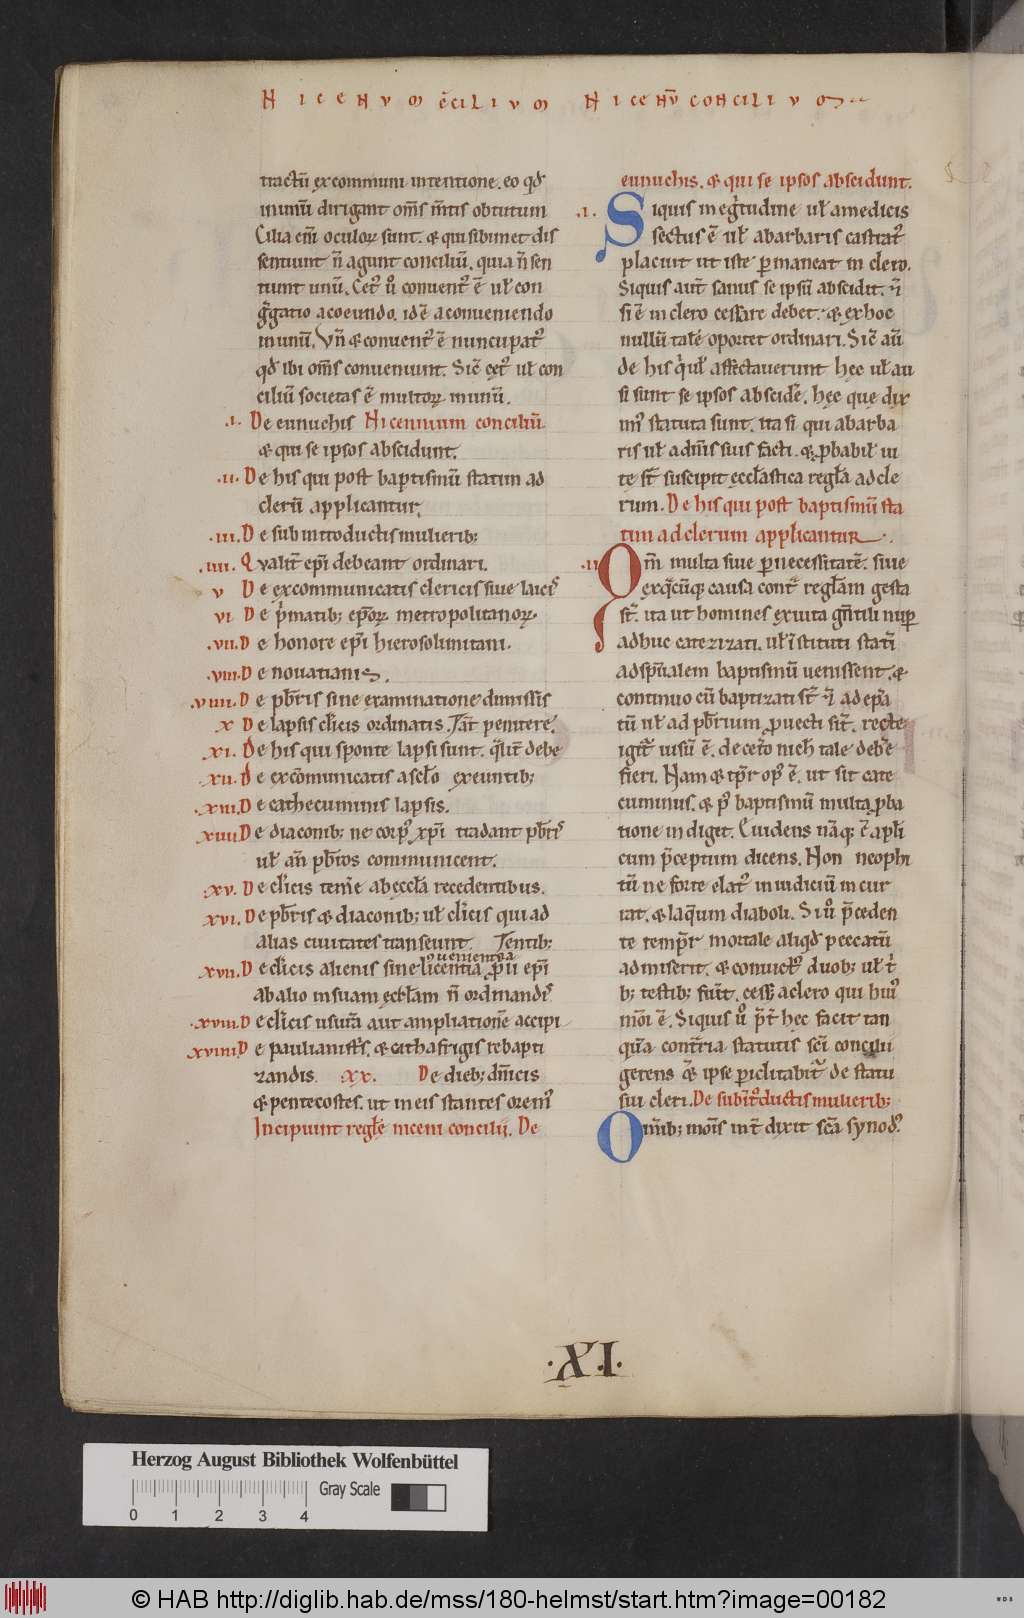 NICENVM CŌCILIVM NICENV̄ CONCILIVM
tractū ex communi intentione. eo qđ
inunū dirigant om̄s m̄tis obtutum
Cilia eīn oculoꝝ sunt. & qui sibimet dis
sentiunt n̄ agunt conciliū. quia n̄ sen
tiunt unū. Cetꝰ ů conuentꝰ ē uł con
g̃gatio a coeundo. idē a conueniendo
in unū. Vn̄ & conuentꝰ ē nuncupatꝰ
qđ ibi om̄s conueniunt. Sic̄ cętꝰ uł con
ciliū societas ē multoꝝ inunū.
.i. De eunuchis Nicenum conciliū
& qui se ipsos abscidunt.
.ii. De his qui post baptismū statim ad
clerū applicantur.
.iii. De subintroductis mulierib;
.iiii. Qualit̄ ep̄i debeant ordinari.
v De excommunicatis clericis siue laicis
vi De p̄matib; ep̄oꝝ metropolitanoꝝ
.vii. De honore ep̄i hierosolimitani.
.viii. De nouatianis.
.viiii. De pb̄ris sine examinatione dimissis
x De lapsis cl̄icis ordinatis. Tāt penitere.
xi. De his qui sponte lapsi sunt. q̄lit̄ debe
.xii. De excōmunicatis a sclō exeuntib;
.xiii. De cathecuminis lapsis.
xiiii De diaconib; ne corpꝰ xp̄i tradant pb̄ris
uł an̄ pb̄ros communicent.
.xv. De cl̄icis tem̄e ab ęccła recedentibus.
xvi. De pb̄ris & diaconib; uł cl̄icis qui ad
alias ciuitates transeunt. Tentib;
uenientia
xvii. De cl̄icis alienis sine licentia ꝓpii ep̄i
ab alio in suam ęcłam n̄ ordinandis
.xviii. De cl̄icis usurā aut ampliationē accipi
xviiii. De paulianistis. & cathafrigis rebapti
zandis. xx. De dieb; dn̄icis
& pentecostes. ut in eis stantes orem̄
Incipiunt regłe niceni concilij. De
eunuchis. & qui se ipsos abscidunt.
.i. Siquis in eg̓tudine uł a medicis
sectus ē uł a barbaris castratꝰ
placuit ut iste ꝑmaneat in clero.
Siquis aut̄ sanus se ipsū abscidit. &
si ē in clero cessare debet. & ex hoc
nullū talē oportet ordinari. Sic̄ aū
de his q̓ uł affectauerunt hęc uł au
si sunt se ipsos abscidē. hęc que dix
imꝰ statuta sunt. ita si qui a barba
ris uł a dn̄is suis facti. & ꝓbabił ui
te st̄ suscipit ecclesiastica regła ad cle
rum. De his qui post baptismū sta
tim ad clerum applicantur
.ii Qm̄ multa siue ꝑ necessitatē. siue
ex q̄cūq; causa cont̄ regłam gesta
st̄. ita ut homines ex uita gn̄tili nuꝑ
adhuc catezizati. uł īstituti stati
ad sp̄ualem baptismū uenissent. &
continuo cū baptizati st̄ & ad ep̄a
tū uł ad pb̄rium ꝓuecti sit̄. recte
igit̄ uisū ē. de cet̄o nich̄ tale deb̄e
fieri. Nam & tp̄r opꝰ ē. ut sit cate
cuminus. & pꝰ baptismū multa ꝓba
tione indiget. Euidens nāq; ē apłi
cum p̄ceptum dicens. Non neophi
tū ne forte elatꝰ in iudiciū incur
rat. & laq̄um diaboli. Si ů p̄ceden
te temp̄r mortale aliqđ peccatū
admiserit. & conuictꝰ duob; uł t̓
b; testib; fūit. cess& a clero qui huiꝰ
mōi ē. Siquis ů p̄t̄ hęc facit tan
qūa cont̄ria statutis sc̄i concilii
gerens q̄si ipse ꝑiclitabit̄ de statu
sui cleri. De subīt̄ductis mulierib;
Om̄ib; mōis int̄dixit sc̄a synodꝰ
.XI.
Herzog August Bibliothek Wolfenbüttel
Gray Scale
0 1 2 3 4
© HAB http://diglib.hab.de/mss/180-helmst/start.htm?image=00182